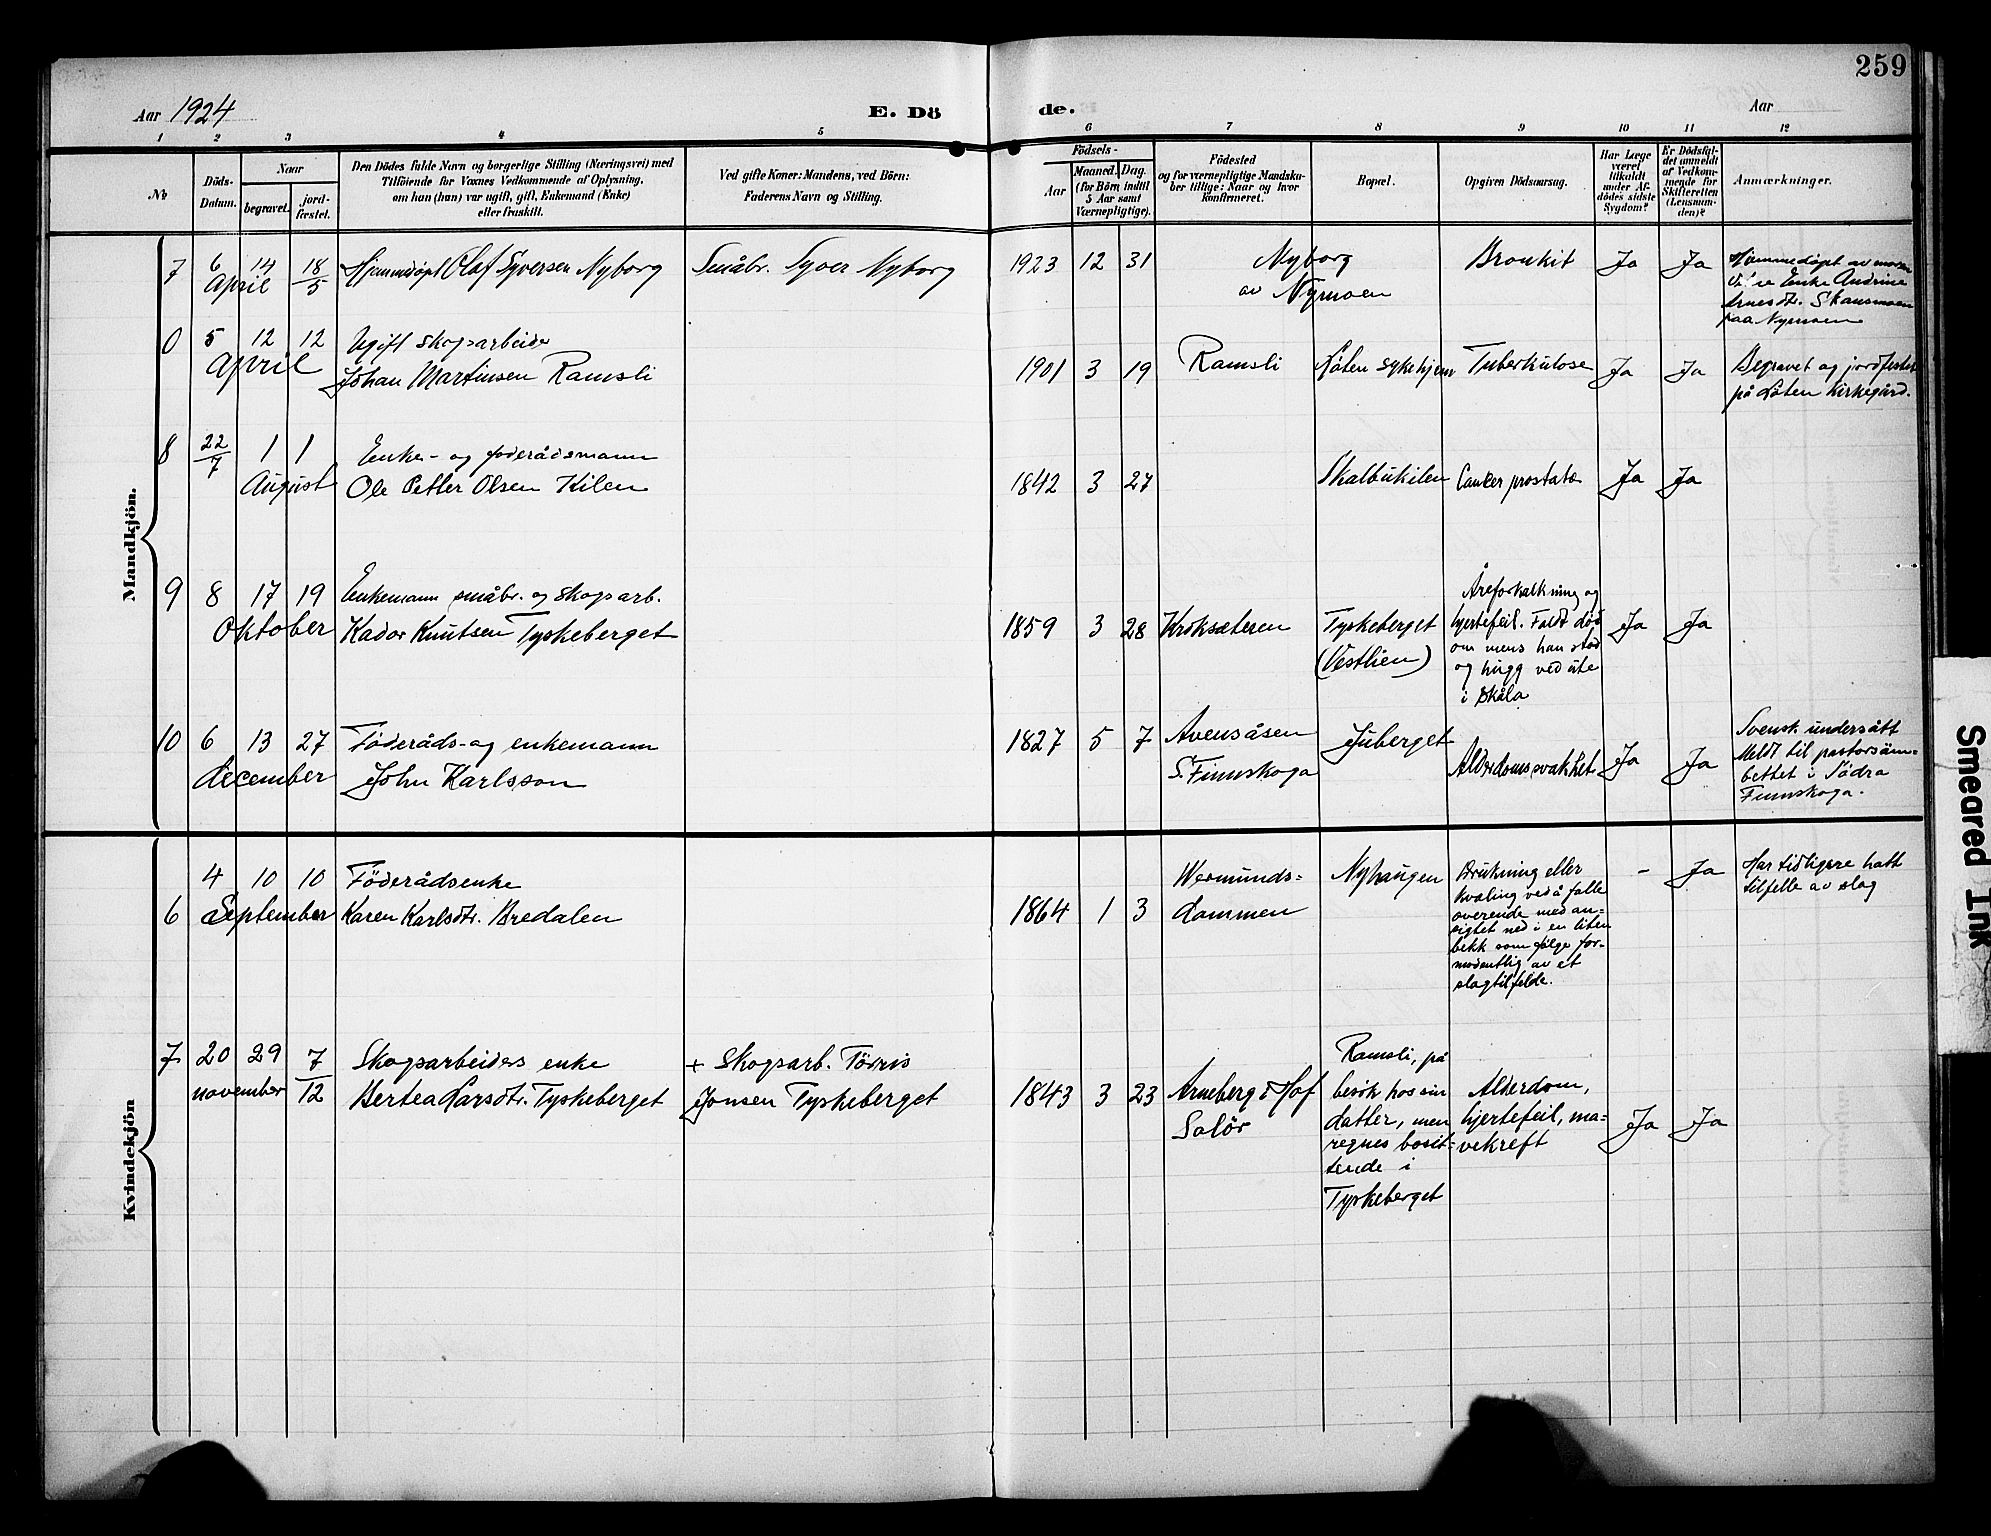 259
Aar 1924
E. Dö
de.
Aar
1 2 3 4 5 6 7 8 9 10 11 12
No
Döds-
Datum.
Naar
begravet.
jord-
fæstet.
Den Dödes fulde Navn og borgerlige Stilling (Næringsvei) med
Tilföiende for Voxnes Vedkommende af Oplysning,
om han (hun) var ugift, gift, Enkemand (Enke)
eller fraskilt.
Ved gifte Koner: Mandens, ved Börn:
Faderens Navn og Stilling.
Födsels-
Aar
Maaned.
Dag.
(for Börn indtil
5 Aar samt
Værnepligtige).
Födested
og for værnepligtige Mandska-
ber tillige: Naar og hvor
konfirmeret.
Bopæl.
Opgiven Dödsaarsag.
Har Læge
været
tilkaldt
under Af-
dödes sidste
Sygdom?
Er Dödsfal-
det anmeldt
af Vedkom-
mende for
Skifteretten
(Lensman-
den)?
Anmærkninger.
Mandkjön.
7 6 14 18/5 Hjemmedöpt Olaf Syversen Nyborg Småbr. Syver Nyborg 1923 12 31 Nyborg Bronkit Ja Ja Hjemmedöpt av moren
April av Nyrmoen
Enke Andrine
Arnesdtr. Skansmoen
paa Nyrmoen
0 5 12 12 Ugift skogsarbeider
April Johan Martinsen Ramsli 1901 3 19 Ramsli Löten sykehjem Tuberkulose Ja Ja Begravet og jordfestet
på Löten Kirkegård.
8 22/7 1 1 Enke- og foderådsmann
August Ole Petter Olsen Kilen 1842 3 27 Skalbukilen Cancer prostatæ Ja Ja
9 8 17 19 Enkemann småbr. og skogsarb.
Oktober Kador Knutsen Tyskeberget 1859 3 28 Kroksæteren Tyskeberget
(Vestlien)
Åreforkalkning og
hjertefeil. Faldt död
om mens han stod
og hugg ved ute
i Skåla
Ja Ja
10 6 13 27 Föderåds- og enkemann
december John Karlsson 1827 5 7 Avensåsen
S. Finnskoga
Juberget
Alderdomssvakhet Ja Ja
Svensk undersått
Meldt til pastorsäm-
bettet i Södra
Finnskoga.
Kvindekjön
6 4 10 10 Föderådsenke
September Karen Karlsdtr. Bredalen 1864 1 3 Wermunds-
dammen
Nyhaugen
Drukning eller
kvæling ved å falle
overende med an-
sigtet ned i en liten
bekk som fölge for-
modentlig av et
slagtilfelde.
- Ja
Har tidligere hatt
tilfelle av slag
7 20 29 7/12 Skogsarbeiders enke + Skogsarb. Törris
november Bertea Larsdtr. Tyskeberget Jonsen Tyskeberget 1843 3 23 Arneberg i Hof
Solör
Ramsli, på
besök hos sin
datter, men
regnes bosit-
tende i
Tyskeberget
Alderdom,
hjertefeil, ma-
vekreft
Ja Ja
Smeared Ink